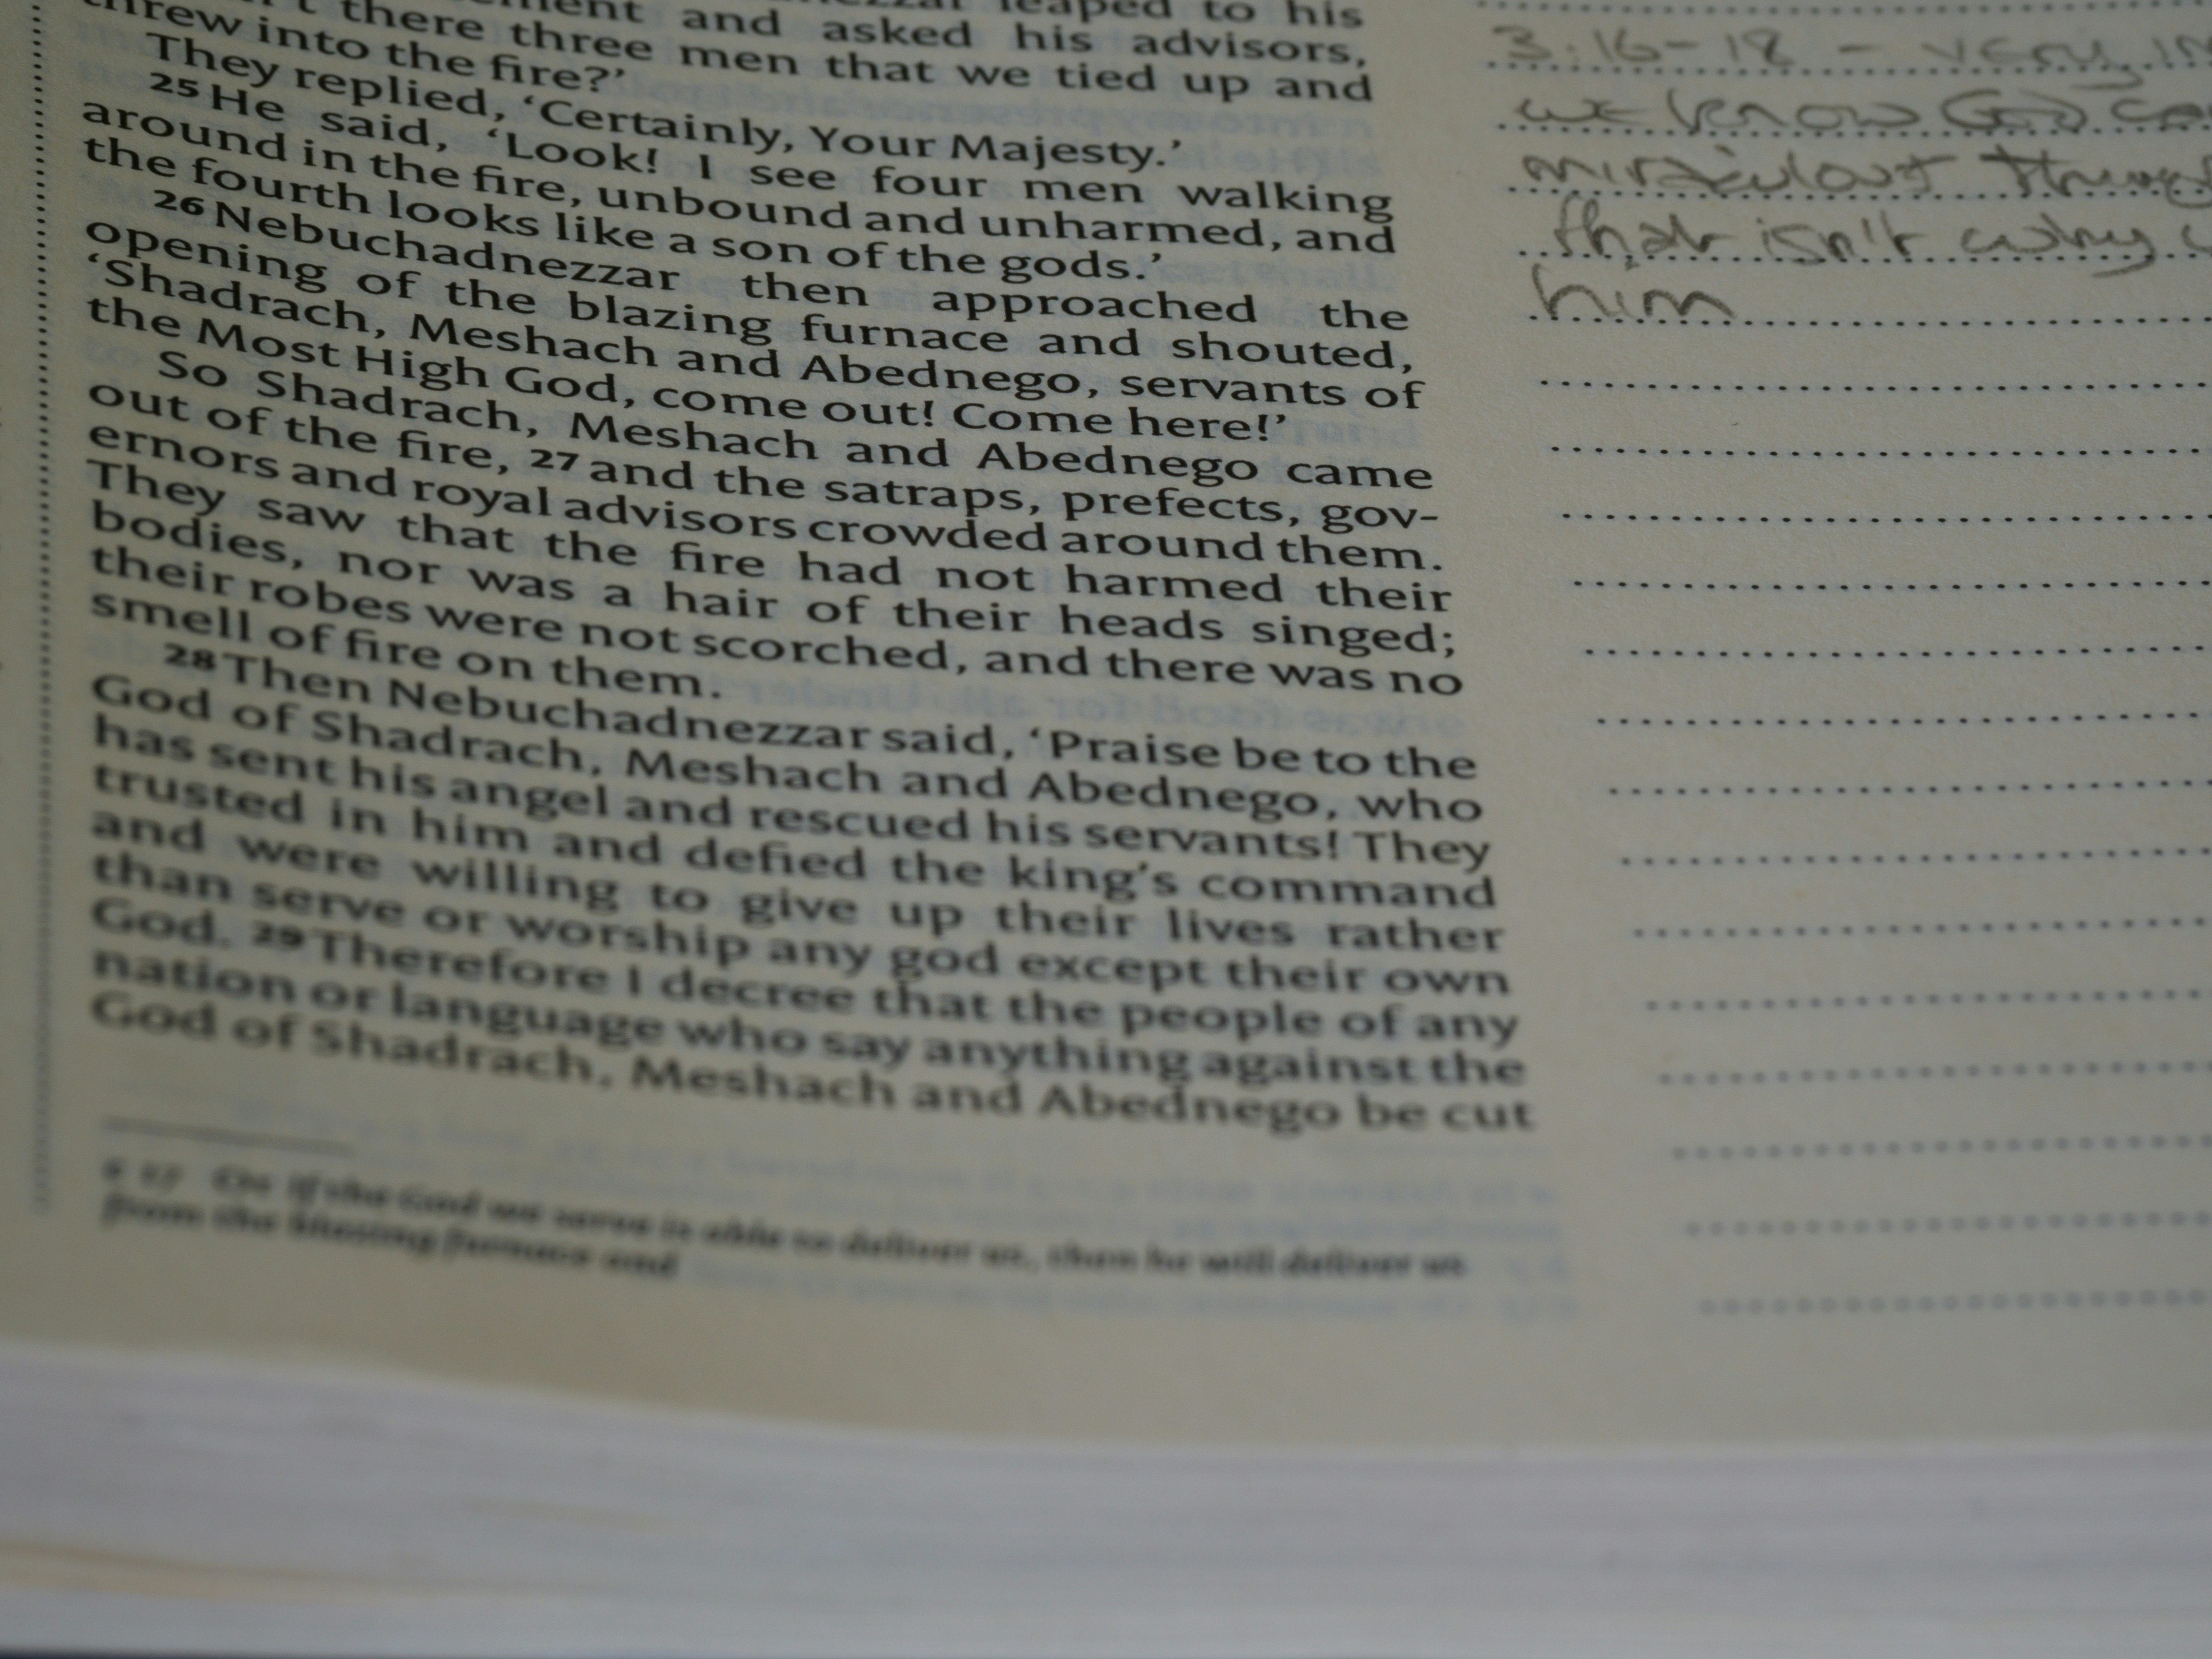 leaped to his
and asked his advisors,
there three men that we tied up and
threw into the fire?’
They replied, ‘Certainly, Your Majesty.’
25 He said, ‘Look! I see four men walking
around in the fire, unbound and unharmed, and
the fourth looks like a son of the gods.’
26 Nebuchadnezzar then approached the
opening of the blazing furnace and shouted,
‘Shadrach, Meshach and Abednego, servants of
the Most High God, come out! Come here!’
So Shadrach, Meshach and Abednego came
out of the fire, 27 and the satraps, prefects, gov-
ernors and royal advisors crowded around them.
They saw that the fire had not harmed their
bodies, nor was a hair of their heads singed;
their robes were not scorched, and there was no
smell of fire on them.
28 Then Nebuchadnezzar said, ‘Praise be to the
God of Shadrach, Meshach and Abednego, who
has sent his angel and rescued his servants! They
trusted in him and defied the king’s command
and were willing to give up their lives rather
than serve or worship any god except their own
God. 29 Therefore I decree that the people of any
nation or language who say anything against the
God of Shadrach, Meshach and Abednego be cut
17 Or If the God we serve is able to deliver us, then he will deliver us
from the blazing furnace and
3:16-18 - very
we know God
miraculous
that isn't why
him